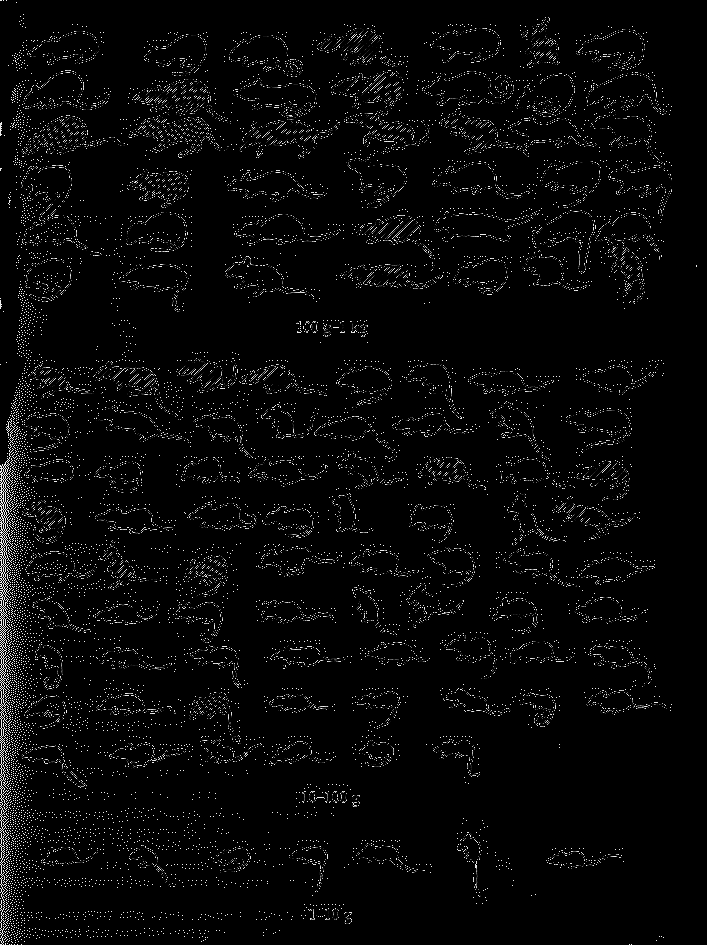 100 g–1 kg
10–100 g
1–10 g